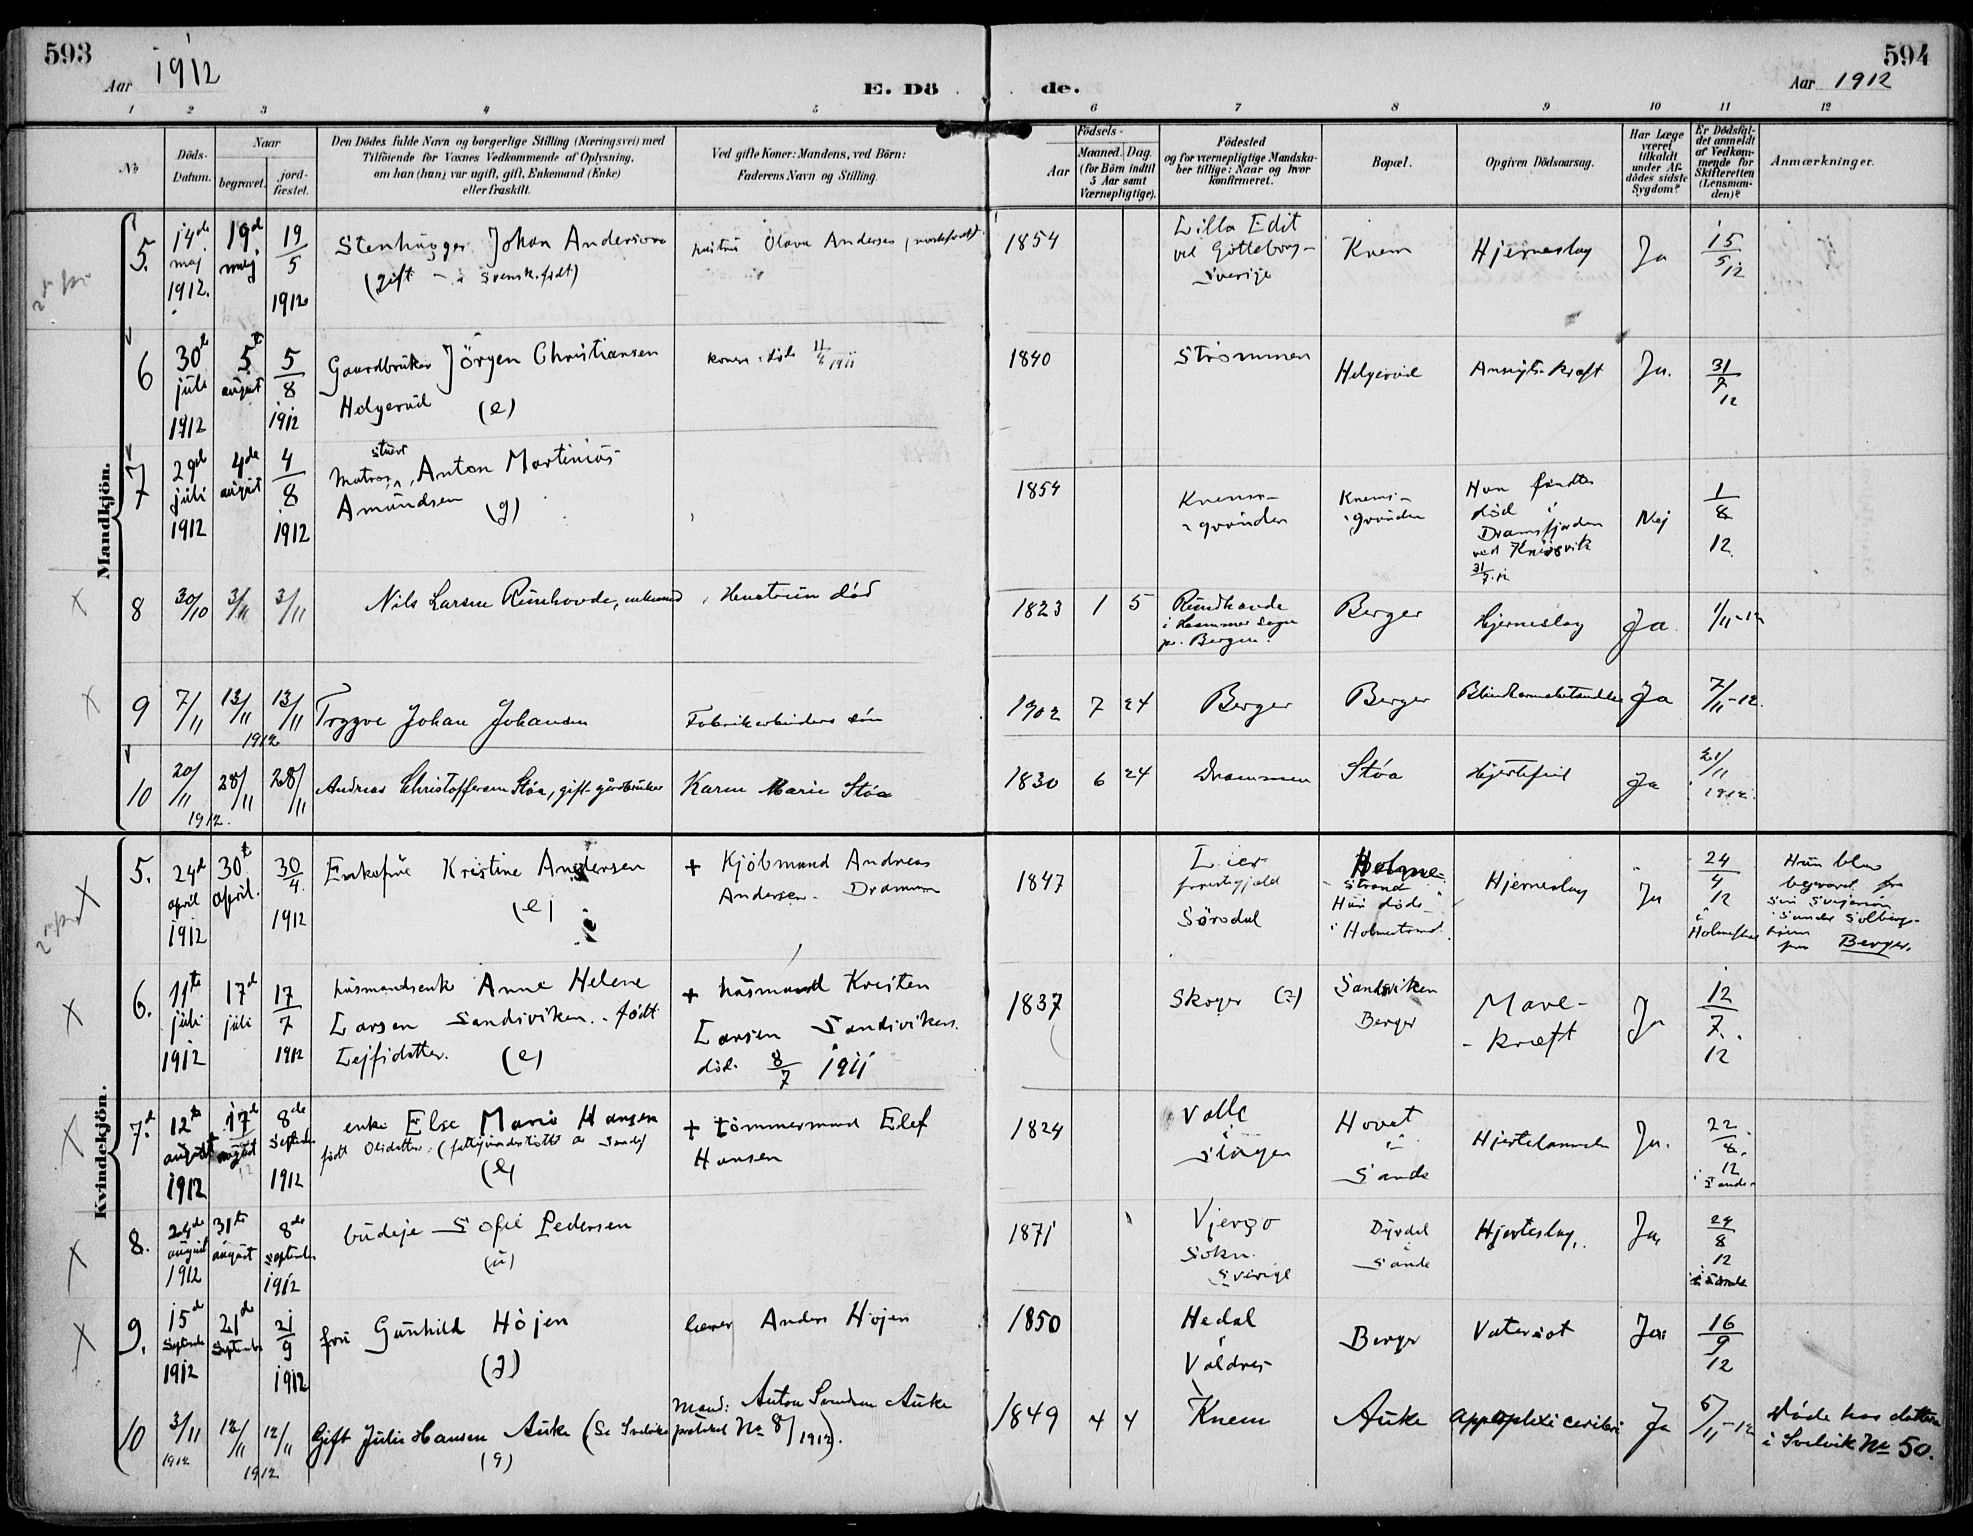 593
Aar 1912
E. Dö
de.
594
Aar 1912
1 2 3 4 5 6 7 8 9 10 11 12
No
Döds-Datum.
Naar
begravet.
jord-fæstet.
Den Dödes fulde Navn og borgerlige Stilling (Næringsvei) med
Tilföiende for Voxnes Vedkommende af Oplysning,
om han (hun) var ugift, gift, Enkemand (Enke)
eller fraskilt.
Ved gifte Koner: Mandens, ved Börn:
Faderens Navn og Stilling.
Födsels-
Aar
Maaned. Dag.
(for Börn indtil
5 Aar samt
Værnepligtige).
Födested
og for værnepligtige Mandska-
ber tillige: Naar og hvor
konfirmeret.
Bopæl.
Opgiven Dödsaarsag.
Har Læge
været
tilkaldt
under Af-
dödes sidste
Sygdom?
Er Dödsfal-
det anmeldt
af Vedkom-
mende for
Skifteretten
(Lensman-
den)?
Anmærkninger.
Mandkjön.
5. 14de maj 1912. 19d maj 19/5 1912 Stenhugger Johan Anderson (gift - svensk født) hustru Olava Andersen 1854 Lilla Edit ved Götteborg - Sverige Knem Hjerneslag Ja 15/5 12
6 30te juli 1912 5te august 5/8 1912 Gaardbruker Jörgen Christiansen Helgerud (e) konen död 11/4 1911 1840 Strømmen Helgerud Ansigts kræft Ja. 31/7 12
7 29de juli 1912 4de august 4/8 1912 Matros, Anton Martinius Amundsen (g) 1854 Knems- grunden Knems- grunden Han fandtes död i Dramsfjorden ved Knivsvik 31/7 12 Nej 1/8 12.
8 30/10 3/11 3/11 Nils Larsen Rundhovde, enkemand Hustruen död 1823 1 5 Rundhovde i Hammer Sogn pr. Bergen. Berger Hjerneslag Ja. 1/11-12
9 7/11 13/11 13/11 1912 Trygve Johan Johansen Fabrikarbeiders sön 1902 7 24 Berger Berger Blindtarmsbetændelse Ja 7/11-12.
10 20/11 28/11 28/11 1912. Andreas Christoffersen Støa, gift gårdbruker Karen Marie Støa 1830 6 24 Drammen Støa Hjertefeil Ja 21/11 1912.
Kvindekjön.
5. 24d april 1912 30t april. 30/4. 1912 Enkefru Kristine Andersen (e) + Kjöbmand Andreas Andersen. Drammen 1847 Lier prestegjeld Sörsdal Holme- strand Hun döde i Holmestrand. Hjerneslag Ja 24/4 12 i Holmestrand Hun blev begravet fra sin svigersön Sander Solberg- hjem paa Berger.
6. 11te juli 1912 17d juli 17/7 1912 husmandsenke Anne Helene Larsen Sandsviken. født Lejfsdatter. (e) + husmand Kristen Larsen Sandsviken. död. 8/7 1911 1837 Skoger (?) Sandsviken Berger Mave- kræft Ja 12/7. 12
7. 12te august 1912 17de august 8de Septembr 1912 enke Else Marie Hansen født Olsdatter. (fattigunderstøttet av Sande) (e) + tömmermand Elef Hansen 1824 Valle i Slagen Hovet i Sande Hjertelammelse Ja. 22/8. 12 i Sande
8. 24de august 1912 31te august 8de September 1912 budeje Sofie Pedersen (u) 1871 Sokn. Sverige Dyrdal i Sande Hjerteslag. Ja, 24/8 12 i Sande
9. 15de Septembr 1912 21de September 21/9 1912 fru Gunhild Höjen (g) lærer Anders Höjen 1850 Hedal i Valdres Berger Vatersot Ja. 16/9 12
10 3/11 1912 12/11 12/11 1912 Gift Julie Hansen Auke (Se Svelviks protokol No 8/1912). (g) Mand: Anton Svendsen Auke 1849 4 4 Knem Auke Apoplexi cerebri Ja 5/11-12 Døde hos datter i Svelvik No 50.